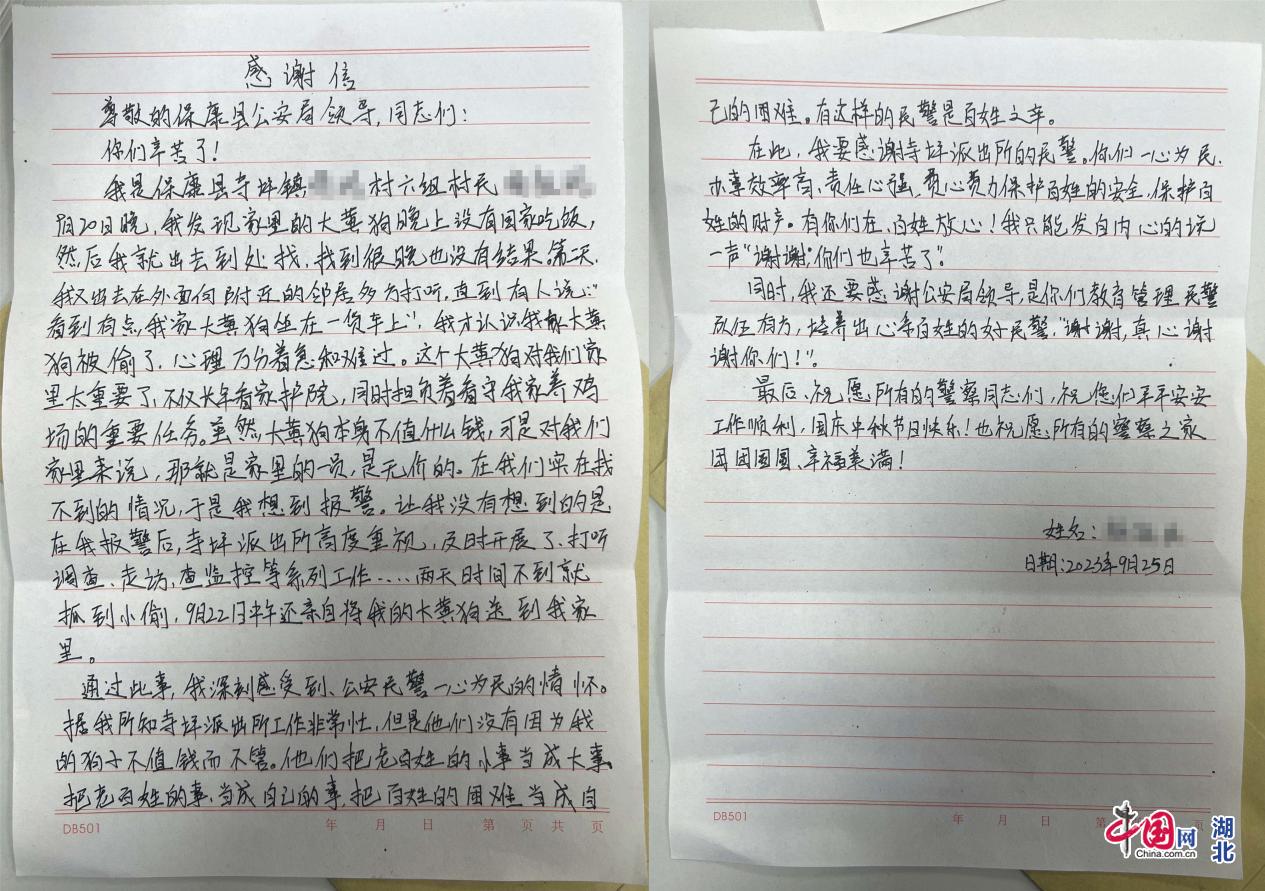 感谢信
尊敬的保康县公安局领导,同志们:
你们辛苦了!
我是保康县寺坪镇 村六组村民
月20日晚,我发现家里的大黄狗晚上没有回家吃饭,
然后我就出去到处找,找到很晚也没有结果。第二天,
我又出去在外面向附近的邻居多方打听,直到有人说:“
看到有点我家大黄狗坐在一货车上”,我才认识我家大黄
狗被偷了,心理万分着急和难过。这个大黄狗对我们家
里太重要了,不仅长年看家护院,同时担负着看守我家养鸡
场的重要任务。虽然,大黄狗本身不值什么钱,可是对我们
家里来说,那就是家里的一员,是无价的。在我们实在找
不到的情况,于是我想到报警。让我没有想到的是
在我报警后,寺坪派出所高度重视,及时开展了打听
调查、走访、查监控等系列工作....两天时间不到就
抓到小偷,9月22日中午还亲自将我的大黄狗送到我家
里。
通过此事,我深刻感受到、公安民警一心为民的情怀。
据我所知寺坪派出所工作非常忙,但是他们没有因为我
的狗子不值钱而不管。他们把老百姓的小事当成大事、
把老百姓的事当成自己的事,把百姓的困难当成自
DB501
年 月 日 第 页 共 页
己的困难。有这样的民警是百姓之幸。
在此,我要感谢寺坪派出所的民警。你们一心为民、
办事效率高、责任心强、费心费力保护百姓的安全,保护百
姓的财产。有你们在、百姓放心!我只能发自内心的说
一声“谢谢;你们也辛苦了”。
同时,我还要感谢公安局领导,是你们教育管理民警
队伍有方,培养出心系百姓的好民警,“谢谢,真心谢
谢你们!”。
最后、祝愿所有的警察同志们,祝您们平平安安
工作顺利,国庆中秋节日快乐!也祝愿所有的警察之家
团团圆圆、幸福美满!
姓名:
日期:2023年9月25日
DB501
年 月 日 第 页
中国网
China.com.cn
湖北